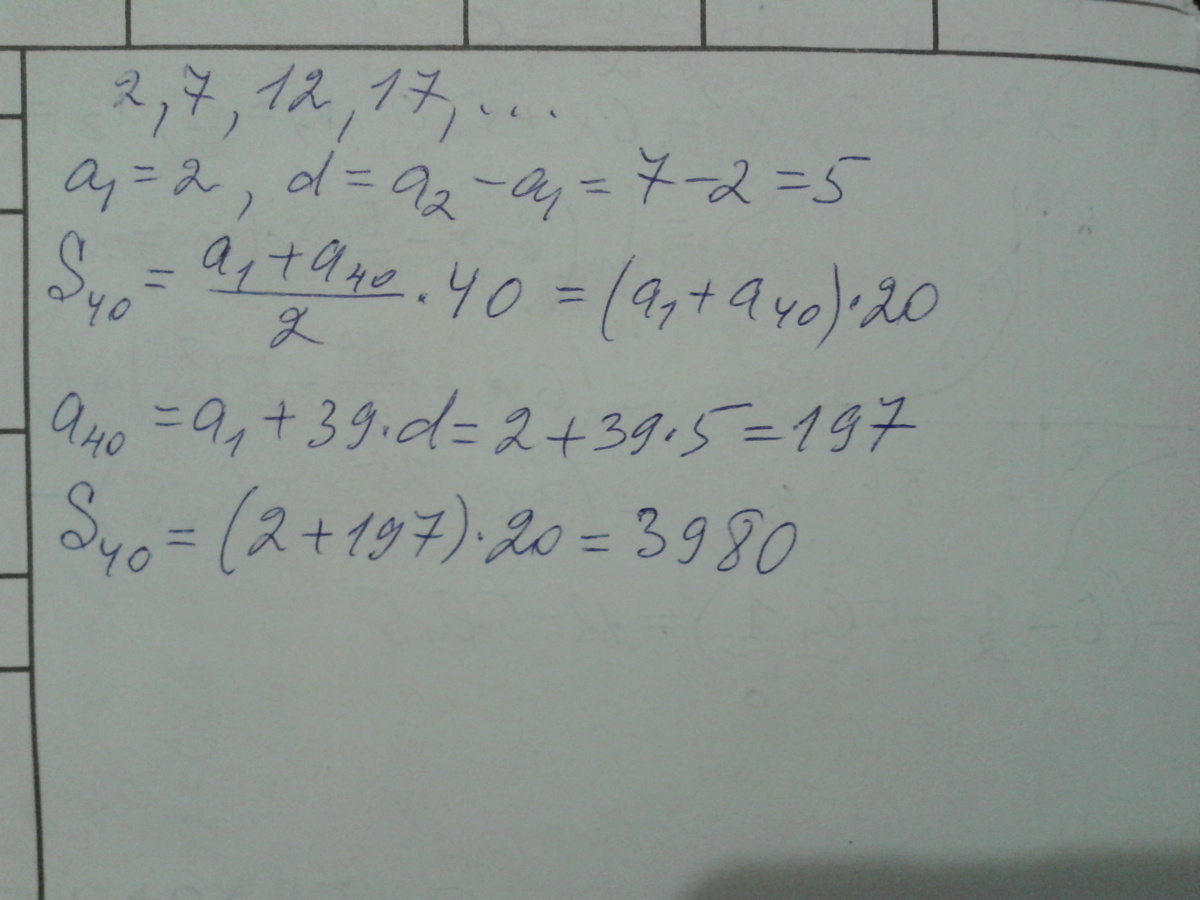 2, 7, 12, 17, ...
a₁ = 2, d = a₂ - a₁ = 7 - 2 = 5
S₄₀ = (a₁ + a₄₀)/2 · 40 = (a₁ + a₄₀) · 20
a₄₀ = a₁ + 39 · d = 2 + 39 · 5 = 197
S₄₀ = (2 + 197) · 20 = 3980